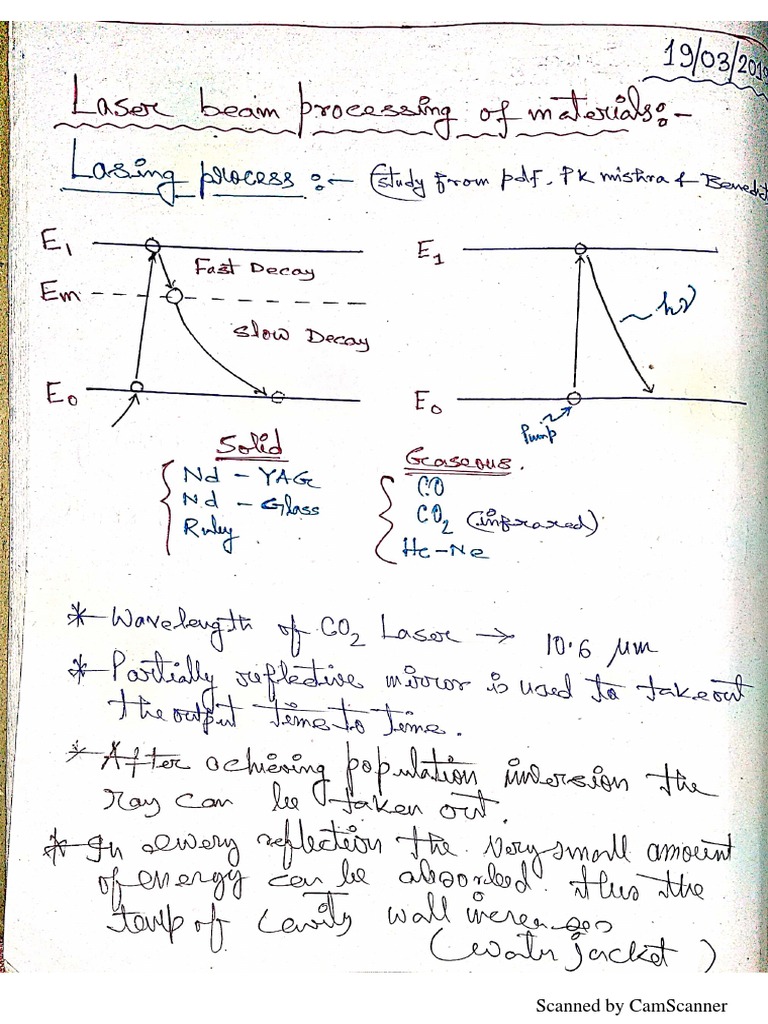 19/03/2019
Laser beam processing of materials:-
Lasing process :- (Study from pdf, PK mishra & Benedict
E1
Fast Decay
Em
Slow Decay
E0
E1
hν
E0
Pump
Solid
Nd - YAG
Nd - Glass
Ruby
Gaseous.
CO
CO2 (infrared)
He-Ne
* Wavelength of CO2 Laser → 10.6 μm
* Partially reflective mirror is used to takeout
the output time to time.
* After achieving population inversion the
ray can be taken out.
* In every reflection the very small amount
of energy can be absorbed. thus the
temp of cavity wall increases
(water jacket)
Scanned by CamScanner